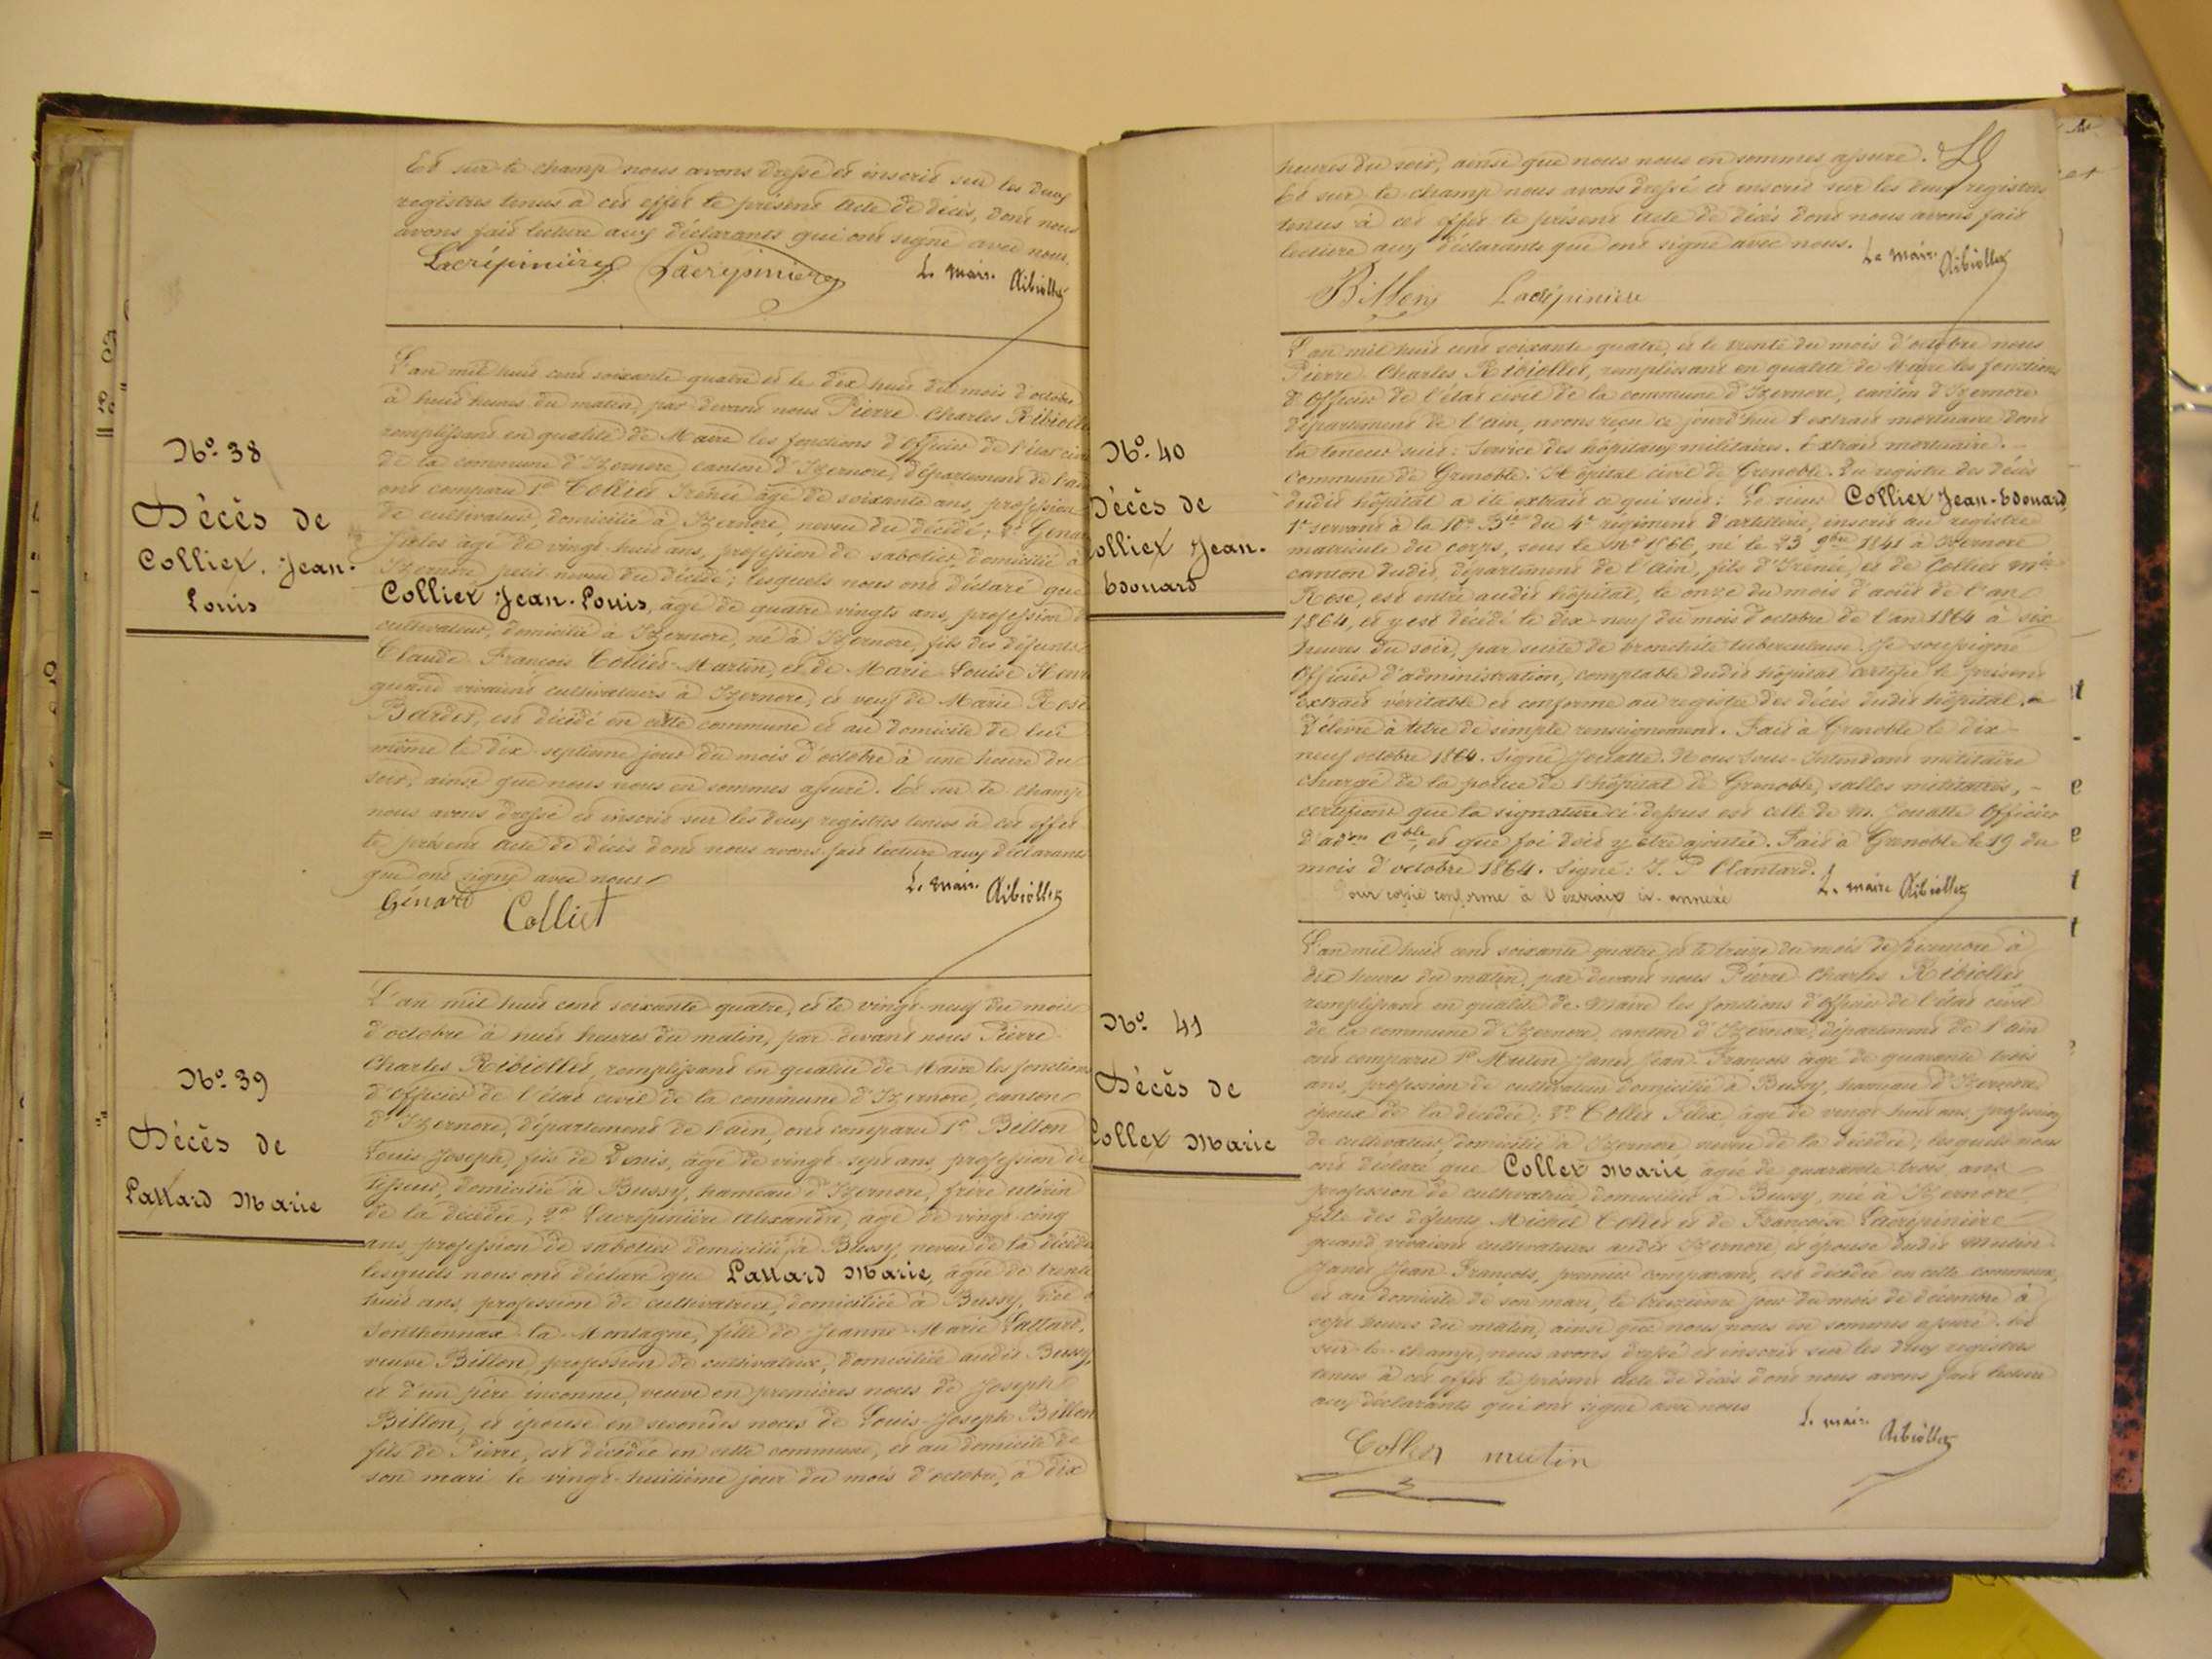 Et sur le champ nous avons dressé et inscrit sur les deux
registres tenus à cet effet le présent acte de décès, dont nous
avons fait lecture aux déclarants qui ont signé avec nous.
Lacrépinière Lacrépinière Le maire Ribiollet
L'an mil huit cent soixante quatre et le dix huit du mois d'octobre
à huit heures du matin, par devant nous Pierre Charles Ribiollet
remplissant en qualité de Maire les fonctions d'officier de l'état civil
de la commune d'Izernore, canton d'Izernore, département de l'ain
ont comparu 1° Colliet Irénée âgé de soixante ans, profession
de cultivateur, domicilié à Izernore, neveu du décédé; 2° Génard
âgé de vingt huit ans, profession de sabotier, domicilié à
Izernore petit neveu du décédé; lesquels nous ont déclaré que
Colliex Jean-Louis, âgé de quatre vingts ans, profession de
cultivateur, domicilié à Izernore, né à Izernore, fils des défunts
Claude François Colliet-Martin, et de Marie Louise
quand vivaient cultivateurs à Izernore, et veuf de Marie Rose
Bardet, est décédé en cette commune et au domicile de lui
même le dix septième jour du mois d'octobre à une heure du
soir, ainsi que nous nous en sommes assuré. Et sur le champ
nous avons dressé et inscrit sur les deux registres tenus à cet effet
le présent acte de décès dont nous avons fait lecture aux déclarants
qui ont signé avec nous
Génard Colliet Le maire Ribiollet
No. 38
Décès de
Colliex. Jean-
Louis
L'an mil huit cent soixante quatre, et le vingt-neuf du mois
d'octobre à huit heures du matin, par devant nous Pierre
Charles Ribiollet, remplissant en qualité de Maire les fonctions
d'officier de l'état civil de la commune d'Izernore, canton
d'Izernore, département de l'ain, ont comparu 1° Billon
Louis-Joseph, fils de Denis, âgé de vingt-sept ans, profession de
domicilié à Bussy, hameau d'Izernore, frère utérin
de la décédée; 2° Lacrépinière Alexandre, âgé de vingt-cinq
ans, profession de sabotier domicilié à Bussy, neveu de la décédée
lesquels nous ont déclaré que Lallard Marie, âgée de trente
huit ans, profession de cultivatrice, domiciliée à Bussy, née à
Sonthonnax la Montagne, fille de Jeanne-Marie Lallard,
veuve Billon, profession de cultivatrice, domiciliée audit Bussy,
et d'un père inconnu, veuve en premières noces de Joseph
Billon, et épouse en secondes noces de Louis-Joseph Billon
fils de Pierre, est décédée en cette commune, et au domicile de
son mari le vingt-huitième jour du mois d'octobre, à dix
No. 39
Décès de
Lallard Marie
heures du soir, ainsi que nous nous en sommes assuré.
Et sur le champ nous avons dressé et inscrit sur les deux registres
tenus à cet effet le présent acte de décès dont nous avons fait
lecture aux déclarants qui ont signé avec nous. Le Maire Ribiollet
Billon Lacrépinière
L'an mil huit cent soixante quatre, et le trente du mois d'octobre nous
Pierre Charles Ribiollet, remplissant en qualité de Maire les fonctions
d'officier de l'état civil de la commune d'Izernore, canton d'Izernore
département de l'ain, avons reçu ce jourd'hui l'extrait mortuaire dont
la teneur suit: Service des hôpitaux militaires. Extrait mortuaire.
Commune de Grenoble. Hôpital civil de Grenoble. Du registre des décès
dudit hôpital a été extrait ce qui suit: Le sieur Colliex Jean-Edouard
1er servant à la 16e Bie du 4e régiment d'artillerie, inscrit au registre
matricule du corps, sous le No 1566, né le 23 9bre 1841 à Izernore
canton dudit, département de l'Ain, fils d'Irénée et de Colliet Mie
Rose, est entré audit hôpital, le onze du mois d'août de l'an
1864, et y est décédé le dix-neuf du mois d'octobre de l'an 1864 à six
heures du soir, par suite de bronchite tuberculeuse. Je soussigné
Officier d'administration, comptable dudit hôpital certifie le présent
extrait véritable et conforme au registre des décès dudit hôpital.
Délivré à titre de simple renseignement. Fait à Grenoble le dix-
neuf octobre 1864. Signé Jouatte. Nous Sous-Intendant militaire
chargé de la police de l'hôpital de Grenoble, salles militaires, -
certifions que la signature ci-dessus est celle de M. Jouatte Officier
d'adon Cble, et que foi doit y être ajoutée. Fait à Grenoble le 19 du
mois d'octobre 1864. Signé: J. P Clantard.
Pour copie conforme à l'extrait ci-annexé Le maire Ribiollet
No. 40
Décès de
Colliex Jean-
Edouard
L'an mil huit cent soixante quatre, et le treize du mois de décembre à
dix heures du matin, par devant nous Pierre Charles Ribiollet
remplissant en qualité de Maire les fonctions d'officier de l'état civil
de la commune d'Izernore, canton d'Izernore, département de l'ain
ont comparu 1° Mutin Janet Jean-François âgé de quarante trois
ans, profession de cultivateur domicilié à Bussy, hameau d'Izernore
époux de la décédée; 2° Collet Félix, âgé de vingt huit ans, profession
de cultivateur, domicilié à Izernore neveu de la décédée; lesquels nous
ont déclaré que Collex Marie âgée de quarante-trois ans
profession de cultivatrice domiciliée à Bussy, née à Izernore
fille des défunts Michel Collet et de Françoise Lacrépinière
quand vivaient cultivateurs audit Izernore, et épouse dudit Mutin
Janet Jean François, premier comparant, est décédée en cette commune,
et au domicile de son mari, le treizième jour du mois de décembre à
sept heures du matin, ainsi que nous nous en sommes assuré. Et
sur le champ, nous avons dressé et inscrit sur les deux registres
tenus à cet effet le présent acte de décès dont nous avons fait lecture
aux déclarants qui ont signé avec nous
Collet mutin Le maire Ribiollet
No. 41
Décès de
Collex Marie